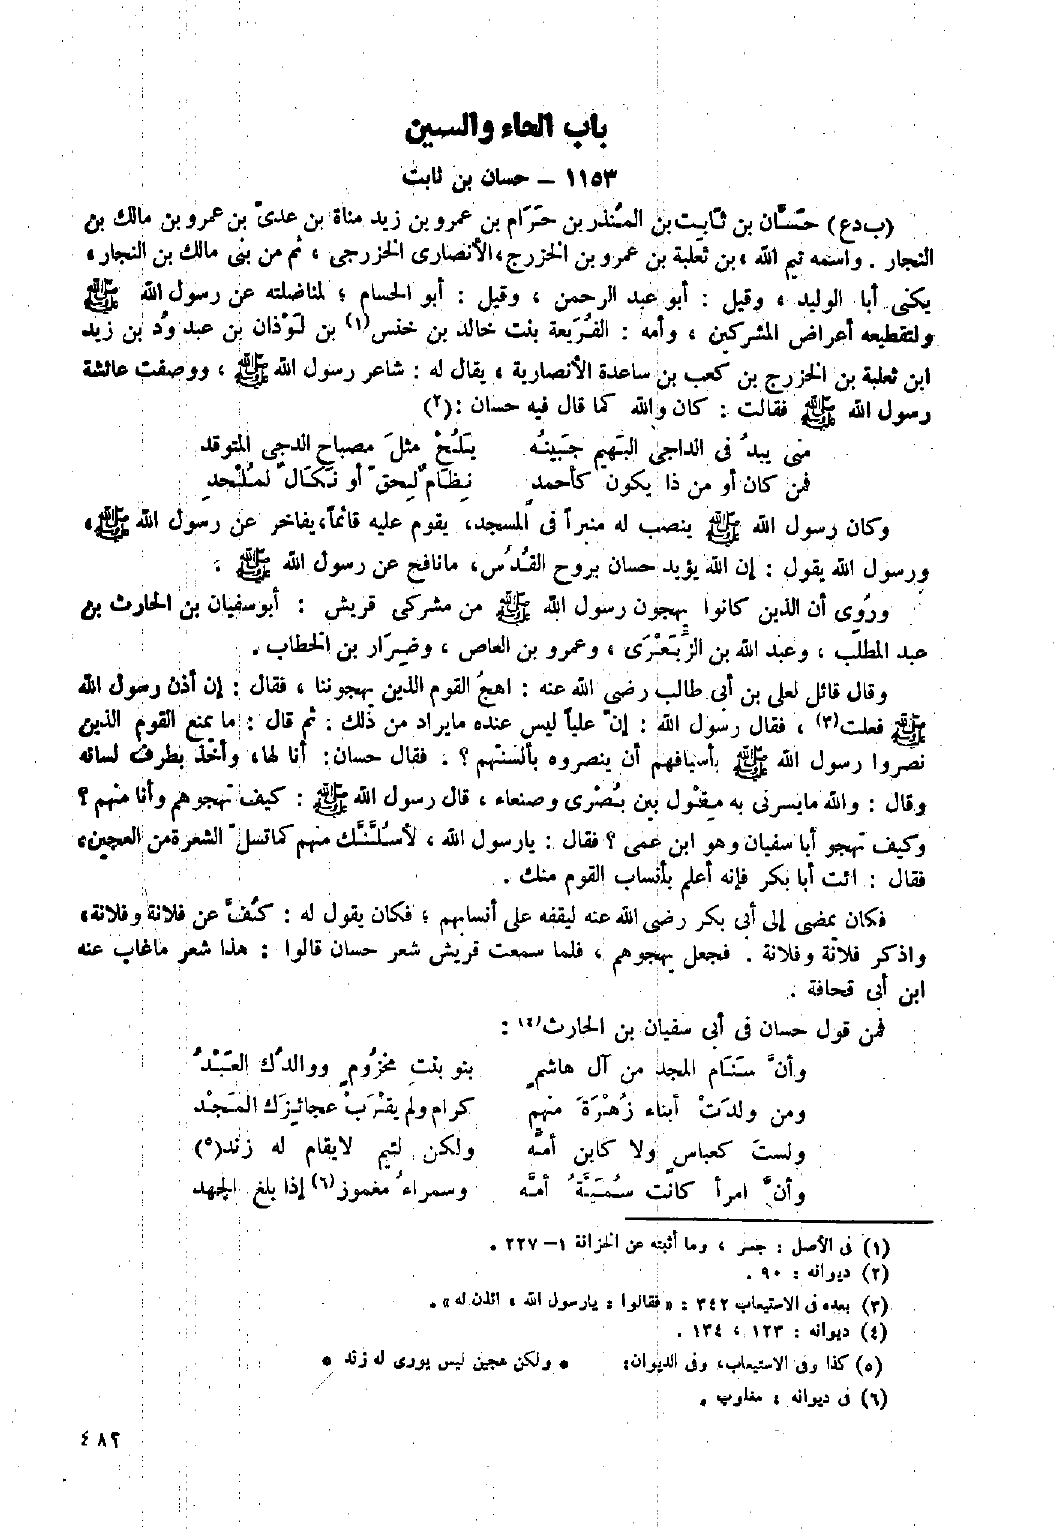 باب الحاء والسين
١١٥٣ – حسان بن ثابت
(ب د ع) حَسَّان بن ثَابِت بن المُنْذر بن حَرَام بن عمرو بن زيد مناة بن عدىّ بن عمرو بن مالك بن
النجار . واسمه تيم الله ، بن ثعلبة بن عمرو بن الخزرج ، الأنصارى الخزرجى ، ثم من بنى مالك بن النجار ،
يكنى أبا الوليد ، وقيل : أبو عبد الرحمن ، وقيل : أبو الحسام ؛ لمناضلته عن رسول الله ﷺ
ولتقطيعه أعراض المشركين ، وأمه : الفُرَيعة بنت خالد بن خنس(١) بن لَوْذان بن عبد وُدّ بن زيد
ابن ثعلبة بن الخزرج بن كعب بن ساعدة الأنصارية ، يقال له : شاعر رسول الله ﷺ ، ووصفت عائشة
رسول الله ﷺ فقالت : كان والله كما قال فيه حسان :(٢)
متى يبدُ فى الداجى البَهيم جَبينُه يَلُحْ مثلَ مصباح الدجى المتوقد
فمن كان أو من ذا يكون كأحمدٍ نِظَامٌ لِحقّ أو نَكَالٌ لمُلْحدِ
وكان رسول الله ﷺ ينصب له منبراً فى المسجد، يقوم عليه قائماً، يفاخر عن رسول الله ﷺ،
ورسول الله يقول : إن الله يؤيد حسان بروح القُدُس، ما نافح عن رسول الله ﷺ .
ورُوِى أن الذين كانوا يهجون رسول الله ﷺ من مشركى قريش : أبو سفيان بن الحارث بن
عبد المطلب ، وعبد الله بن الزِّبَعْرَى ، وعمرو بن العاص ، وضِرَار بن الخطاب .
وقال قائل لعلى بن أبى طالب رضى الله عنه : اهجُ القوم الذين يهجوننا ، فقال : إن أذن رسول الله
ﷺ فعلت(٣) ، فقال رسول الله : إن علياً ليس عنده مايراد من ذلك : ثم قال : ما يمنع القوم الذين
نصروا رسول الله ﷺ بأسيافهم أن ينصروه بألسنتهم ؟ . فقال حسان : أنا لها، وأخذ بطرف لسانه
وقال : والله مايسرنى به مِقْول بين بُصْرى وصنعاء ، قال رسول الله ﷺ : كيف تهجوهم وأنا منهم ؟
وكيف تهجو أبا سفيان وهو ابن عمى ؟ فقال : يارسول الله ، لأسُلَّنَّك منهم كما تسلّ الشعرة من العجين،
فقال : ائت أبا بكر فإنه أعلم بأنساب القوم منك .
فكان يمضى إلى أبى بكر رضى الله عنه ليقفه على أنسابهم ؛ فكان يقول له : كُفَّ عن فلانة وفلانة،
واذكر فلانة وفلانة . فجعل يهجوهم ، فلما سمعت قريش شعر حسان قالوا : هذا شعر ماغاب عنه
ابن أبى قحافة .
فمن قول حسان فى أبى سفيان بن الحارث(٤) :
وأنَّ سَنَام المجد من آل هاشمٍ بنو بنتِ مخزُومٍ ووالدُك العَبْدُ
ومن ولدَتْ أبناء زُهْرَةَ منهم كرام ولم يقْرَبْ عجائِزَك المَجْد
ولستَ كعباسٍ ولا كابن أمّه ولكن لئيم لايقام له زند(٥)
وأنَّ امرأ كانت سُمَيَّةُ أمَّه وسمراءُ مغموز(٦) إذا بلغ الجهد
(١) فى الأصل : جسر ، وما أثبته عن الخزانة ١–٢٢٧ .
(٢) ديوانه : ٩٠ .
(٣) بعده فى الاستيعاب ٣٤٢ : « فقالوا : يارسول الله ، ائذن له» .
(٤) ديوانه : ١٢٣ ، ١٣٤ .
(٥) كذا وفى الاستيعاب، وفى الديوان: * ولكن هجين ليس يورى له زند *
(٦) فى ديوانه ، مغلوب .
٤٨٢